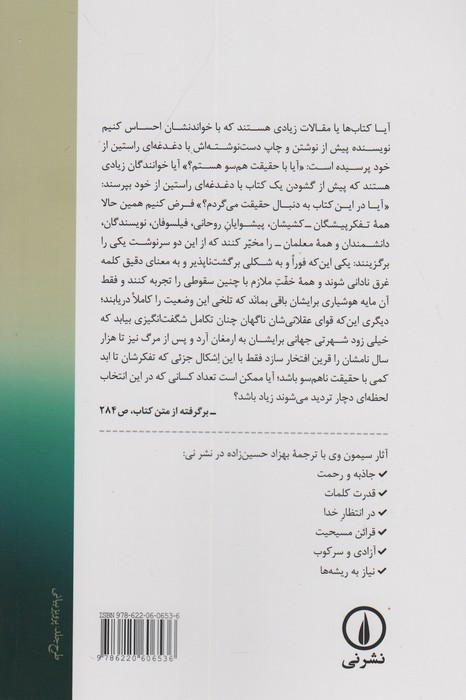 آیا کتاب‌ها یا مقالات زیادی هستند که با خواندنشان احساس کنیم
نویسنده پیش از نوشتن و چاپ دست‌نوشته‌اش با دغدغه‌ای راستین از
خود پرسیده است: «آیا با حقیقت هم‌سو هستم؟» آیا خوانندگان زیادی
هستند که پیش از گشودن یک کتاب با دغدغه‌ای راستین از خود بپرسند:
«آیا در این کتاب به دنبال حقیقت می‌گردم؟» فرض کنیم همین حالا
همهٔ تفکرپیشگان ــ کشیشان، پیشوایانِ روحانی، فیلسوفان، نویسندگان،
دانشمندان و همهٔ معلمان ــ را مخیّر کنند که از این دو سرنوشت یکی را
برگزینند: یکی این‌که فوراً و به شکلی برگشت‌ناپذیر و به معنای دقیق کلمه
غرق نادانی شوند و همهٔ خفّتِ ملازم با چنین سقوطی را تجربه کنند و فقط
آن مایه هوشیاری برایشان باقی بماند که تلخی این وضعیت را کاملاً دریابند؛
دیگری این‌که قوای عقلانی‌شان ناگهان چنان تکامل شگفت‌انگیزی بیابد که
خیلی زود شهرتی جهانی برایشان به ارمغان آرد و پس از مرگ نیز تا هزار
سال نامشان را قرین افتخار سازد فقط با این اِشکال جزئی که تفکرشان تا ابد
کمی با حقیقت ناهم‌سو باشد؛ آیا ممکن است تعداد کسانی که در این انتخاب
لحظه‌ای دچار تردید می‌شوند زیاد باشد؟
ــ برگرفته از متن کتاب، ص ۲۸۴
آثار سیمون وی با ترجمهٔ بهزاد حسین‌زاده در نشر نی:
✓ جاذبه و رحمت
✓ قدرت کلمات
✓ در انتظارِ خدا
✓ قرائن مسیحیت
✓ آزادی و سرکوب
✓ نیاز به ریشه‌ها
نشر نی
ISBN 978-622-06-0653-6
9 786220 606536
طرح جلد: پرویز بیانی